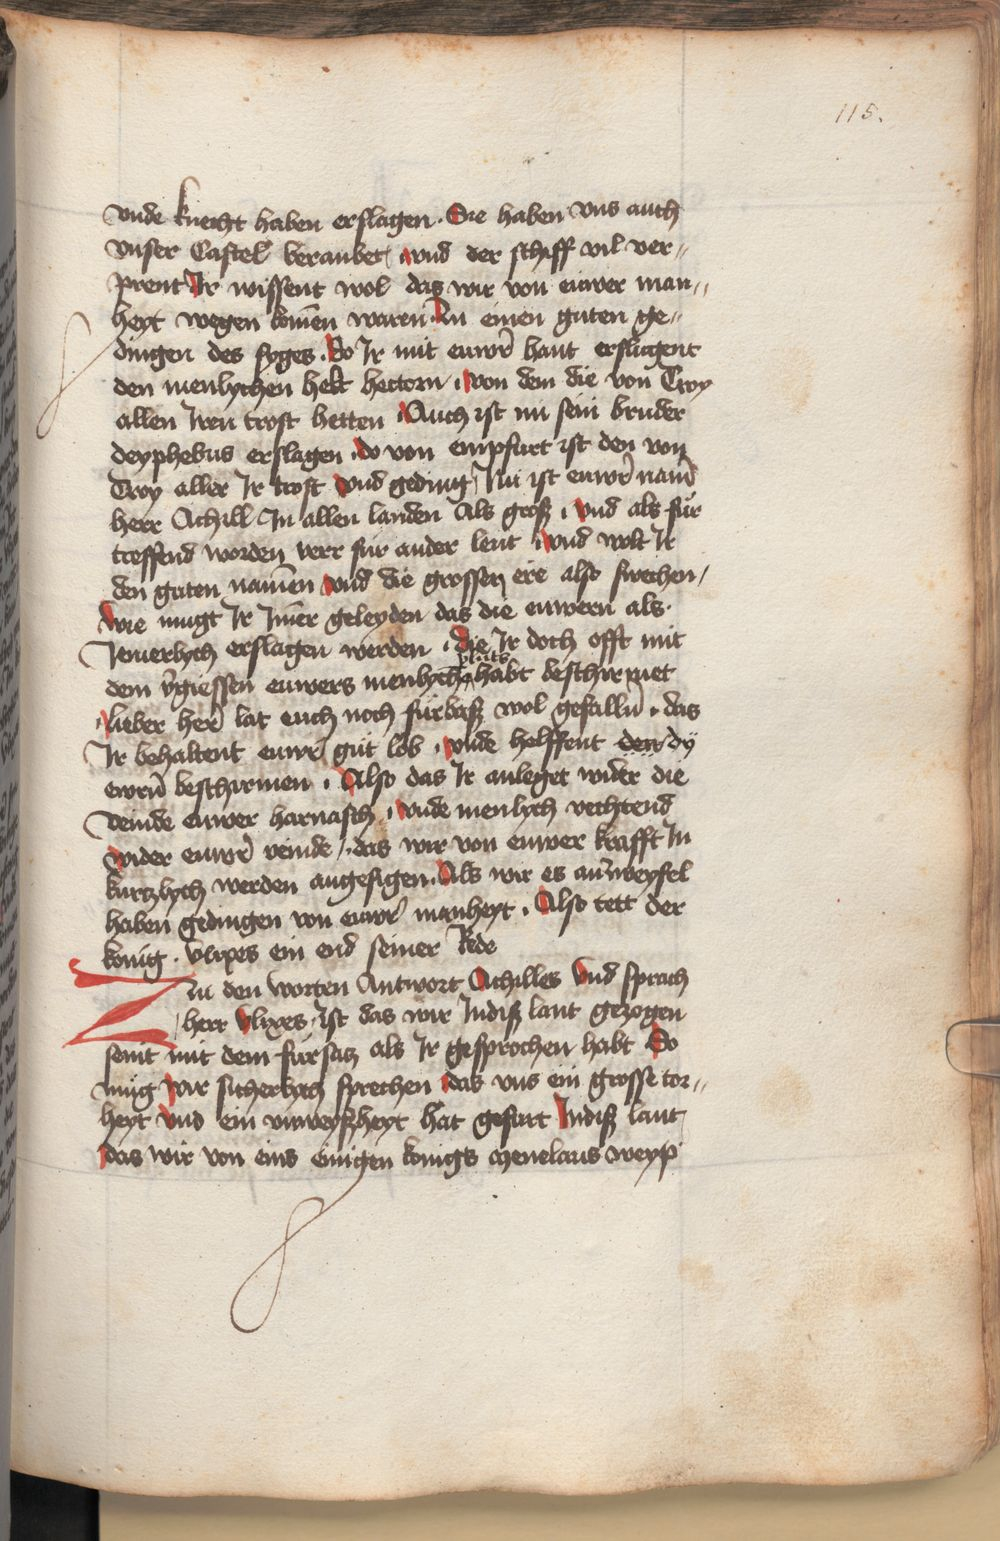 115.
vnde knecht haben erslagen . Sie haben vns auch
vnser Castel beraubet / vnd der schiff vil ver„
prent Ir wissent wol das wir von euwer man„
heyt wegen komēn waren In einen guten ge„
dingen des syges . Do Ir mit euwr̄ hant erslugent
den menlychen helt hectorn . von dem die von Troy
allen Iren trost hetten . Auch ist nu sein bruder
deyphebus erslagen . do von empfurt ist den von
Troy aller Ir trost vnd geding / Nu ist euwr̄ nam̄
herr Achill In allen landen Als groß . vnd als für
treffend worden verr für ander leut . vnd wolt Ir
den guten namēn vnd die grossen ere also swechen /
wie mugt Ir Im̄er geleyden das die euwern als
Iemerlych erslagen werden . die Ir doch offt mit
dem v̄giessen euwers menlychē pluts habt beschirmet
. lieber her̄ lat euch noch fürbaß wol gefalln̄ . das
Ir behaltent euwr̄ gut lob . vnde helffent den dy
ewrn̄ beschirmen . Also das Ir anleget wider die
veinde euwer harnasch . vnde menlych vechtend
wider euwr̄ veinde . das wir von euwer krafft In
kurtzlych werden angesigen . Als wir es an̄ zweyfel
haben gedingen von euwr̄ manheyt . Also tett der
konig . vlixes ein end seiner Rede
Zu den worten Antwort Achilles vnd sprach
herr vlixes . Ist das wir Indiß lant gezogen
seint mit dem fürsatz als Ir gesprochen habt So
mug wir sicherlych sprechen das vns ein grosse tor„
heyt vnd ein vnweyßheyt hat gefurt Indiß lant
das wir von eins einigen konigs menelaus weyp